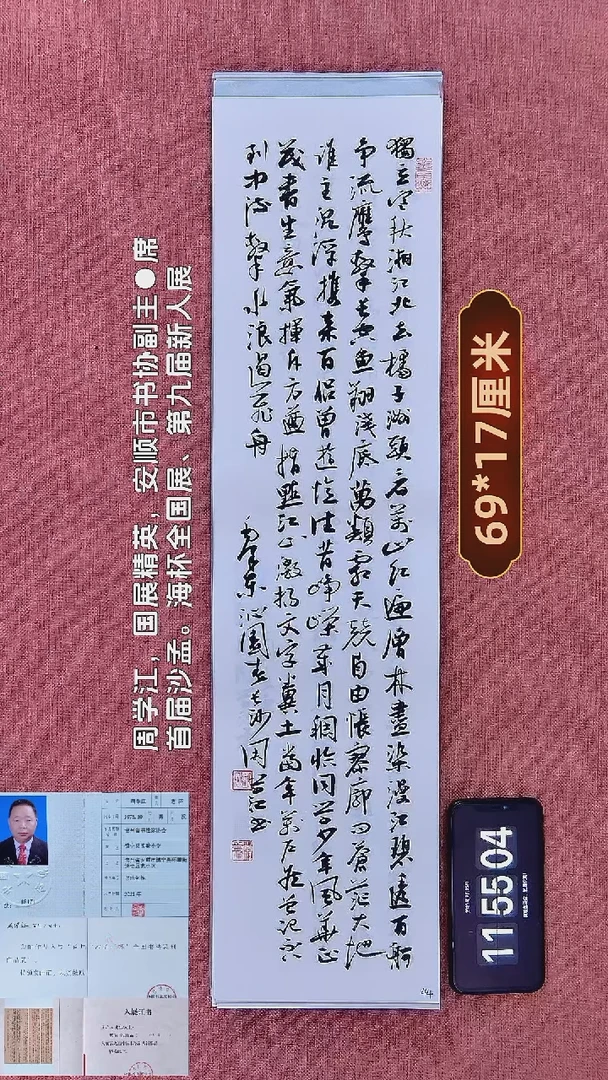 獨立寒秋湘江北去橘子洲頭看萬山紅遍層林盡染漫江碧透百舸
爭流鷹擊長空魚翔淺底萬類霜天競自由悵寥廓問蒼茫大地
誰主沉浮携來百侣曾遊憶往昔崢嶸歲月稠恰同學少年風華正
茂書生意氣揮斥方遒指點江山激揚文字糞土當年萬戶侯曾記否
到中流擊水浪遏飛舟
毛澤東沁園春長沙周学江书
周学江，国展精英，安顺市书协副主●席
首届沙孟。海杯全国展、第九届新人展
69*17厘米
11 55 04
入展证书